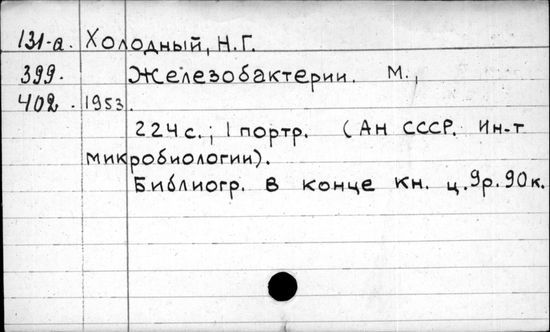 131-а. Холодный, Н.Г.
399. Железобактерии. М.,
402. 1953.
224с.; 1 портр. (АН СССР. Ин-т
микробиологии).
Библиогр. в конце кн. ц. 9р. 90к.